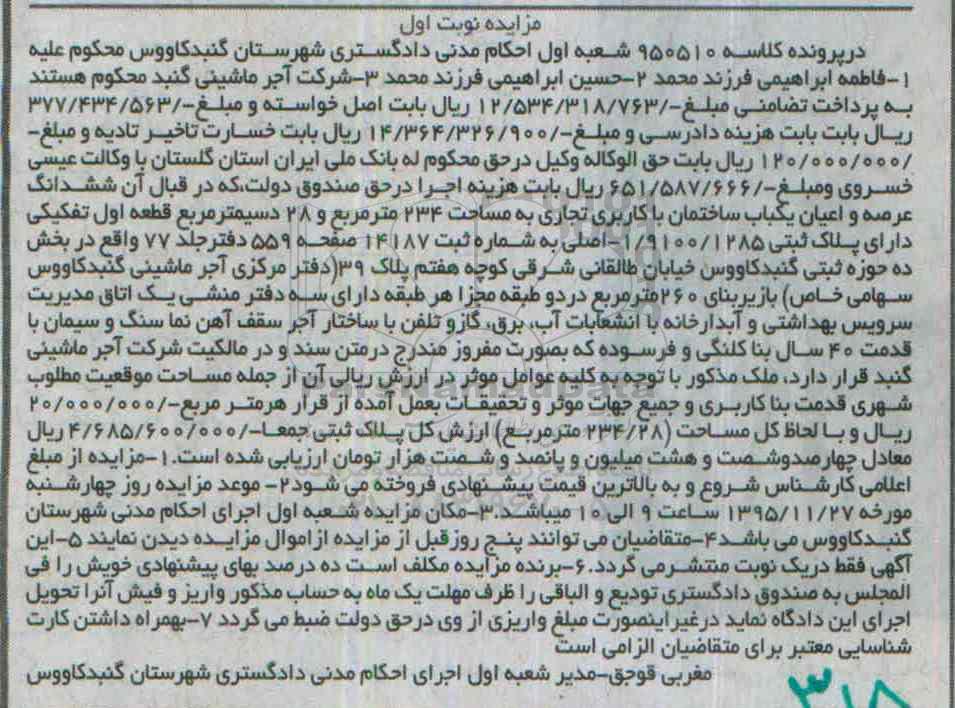 مزایده نوبت اول
درپرونده کلاسه ۹۵۰۵۱۰ شعبه اول احکام مدنی دادگستری شهرستان گنبدکاووس محکوم علیه
۱-فاطمه ابراهیمی فرزند محمد ۲-حسین ابراهیمی فرزند محمد ۳-شرکت آجر ماشینی گنبد محکوم هستند
به پرداخت تضامنی مبلغ-/۱۲/۵۳۴/۳۱۸/۷۶۳ ریال بابت اصل خواسته و مبلغ-/۳۷۷/۴۳۴/۵۶۳
ریال بابت بابت هزینه دادرسی و مبلغ-/۱۴/۳۶۴/۳۲۶/۹۰۰ ریال بابت خسارت تاخیر تادیه و مبلغ-
/۱۲۰/۰۰۰/۰۰۰ ریال بابت حق الوکاله وکیل درحق محکوم له بانک ملی ایران استان گلستان با وکالت عیسی
خسروی ومبلغ-/۶۵۱/۵۸۷/۶۶۶ ریال بابت هزینه اجرا درحق صندوق دولت،که در قبال آن ششدانگ
عرصه و اعیان یکباب ساختمان با کاربری تجاری به مساحت ۲۳۴ مترمربع و ۲۸ دسیمترمربع قطعه اول تفکیکی
دارای پلاک ثبتی ۱/۹۱۰۰/۱۲۸۵-اصلی به شماره ثبت ۱۴۱۸۷ صفحه ۵۵۹ دفترجلد ۷۷ واقع در بخش
ده حوزه ثبتی گنبدکاووس خیابان طالقانی شرقی کوچه هفتم پلاک ۳۹(دفتر مرکزی آجر ماشینی گنبدکاووس
سهامی خاص) بازیربنای ۲۶۰مترمربع دردو طبقه مجزا هر طبقه دارای سه دفتر منشی یک اتاق مدیریت
سرویس بهداشتی و آبدارخانه با انشعابات آب، برق، گازو تلفن با ساختار آجر سقف آهن نما سنگ و سیمان با
قدمت ۴۰ سال بنا کلنگی و فرسوده که بصورت مفروز مندرج درمتن سند و در مالکیت شرکت آجر ماشینی
گنبد قرار دارد، ملک مذکور با توجه به کلیه عوامل موثر در ارزش ریالی آن از جمله مساحت موقعیت مطلوب
شهری قدمت بنا کاربری و جمیع جهات موثر و تحقیقات بعمل آمده از قرار هرمتر مربع-/۲۰/۰۰۰/۰۰۰
ریال و با لحاظ کل مساحت (۲۳۴/۲۸ مترمربع) ارزش کل پلاک ثبتی جمعا-/۴/۶۸۵/۶۰۰/۰۰۰ ریال
معادل چهارصدوشصت و هشت میلیون و پانصد و شصت هزار تومان ارزیابی شده است.۱-مزایده از مبلغ
اعلامی کارشناس شروع و به بالاترین قیمت پیشنهادی فروخته می شود۲- موعد مزایده روز چهارشنبه
مورخه ۱۳۹۵/۱۱/۲۷ ساعت ۹ الی ۱۰ میباشد.۳-مکان مزایده شعبه اول اجرای احکام مدنی شهرستان
گنبدکاووس می باشد۴-متقاضیان می توانند پنج روزقبل از مزایده ازاموال مزایده دیدن نمایند ۵-این
آگهی فقط دریک نوبت منتشرمی گردد.۶-برنده مزایده مکلف است ده درصد بهای پیشنهادی خویش را فی
المجلس به صندوق دادگستری تودیع و الباقی را ظرف مهلت یک ماه به حساب مذکور واریز و فیش آنرا تحویل
اجرای این دادگاه نماید درغیراینصورت مبلغ واریزی از وی درحق دولت ضبط می گردد ۷-بهمراه داشتن کارت
شناسایی معتبر برای متقاضیان الزامی است
مغربی قوجق-مدیر شعبه اول اجرای احکام مدنی دادگستری شهرستان گنبدکاووس
۳۱۸